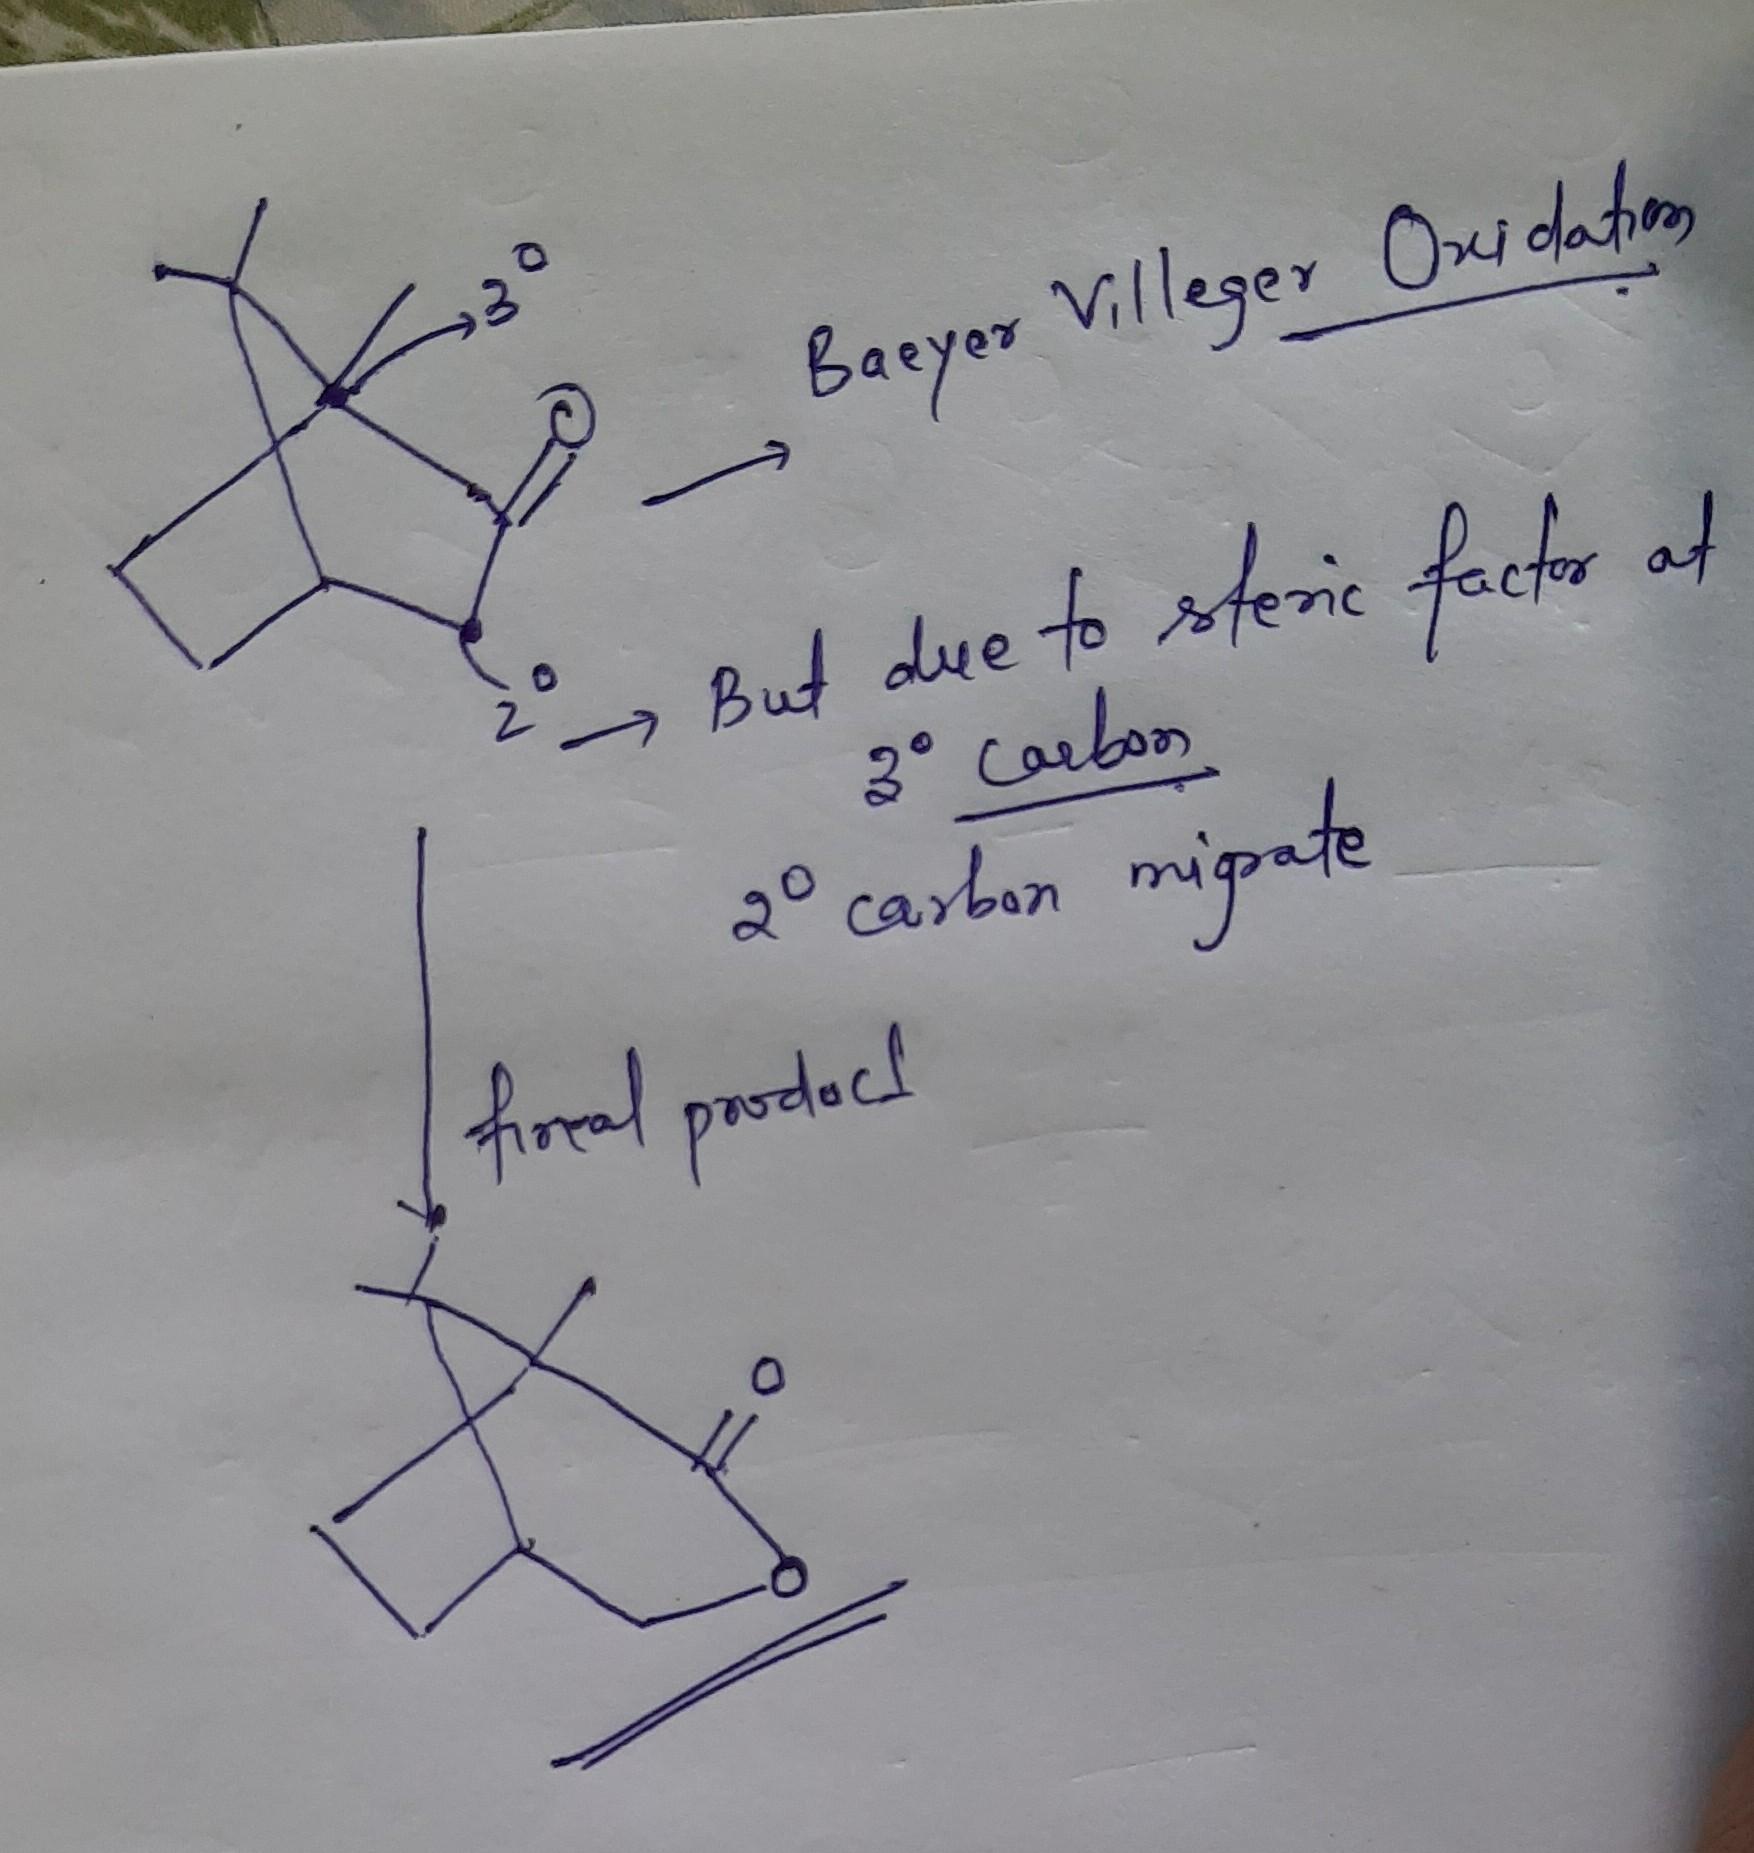 3°
O
Baeyer Villeger Oxidation
2° → But due to steric factor at
3° carbon
2° carbon migrate
final product
O
O